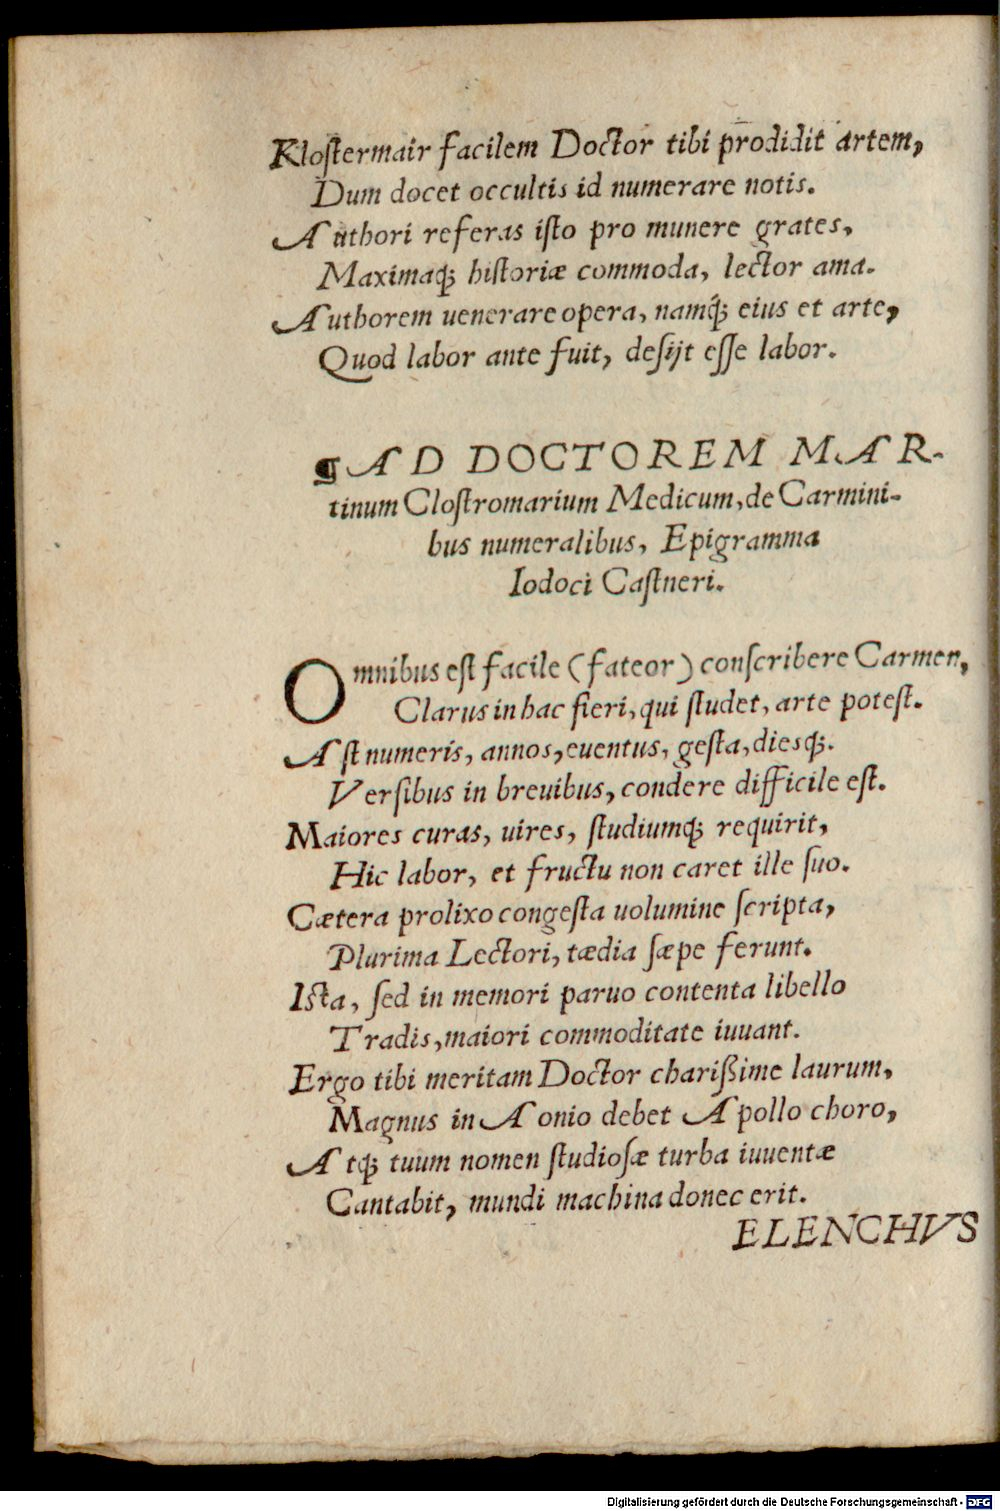 Klostermair facilem Doctor tibi prodidit artem,
Dum docet occultis id numerare notis.
Authori referas isto pro munere grates,
Maximaq́; historiæ commoda, lector ama.
Authorem uenerare opera, namq́; eius et arte,
Quod labor ante fuit, desijt esse labor.
¶AD DOCTOREM MAR-
tinum Clostromarium Medicum, de Carmini-
bus numeralibus, Epigramma
Iodoci Castneri.
Omnibus est facile (fateor) conscribere Carmen,
Clarus in hac fieri, qui studet, arte potest.
Ast numeris, annos, euentus, gesta, diesq́;.
Versibus in breuibus, condere difficile est.
Maiores curas, uires, studiumq́; requirit,
Hic labor, et fructu non caret ille suo.
Cætera prolixo congesta uolumine scripta,
Plurima Lectori, tædia sæpe ferunt.
Ista, sed in memori paruo contenta libello
Tradis, maiori commoditate iuuant.
Ergo tibi meritam Doctor charißime laurum,
Magnus in Aonio debet Apollo choro,
Atq́; tuum nomen studiosæ turba iuuentæ
Cantabit, mundi machina donec erit.
ELENCHVS
Digitalisierung gefördert durch die Deutsche Forschungsgemeinschaft - DFG